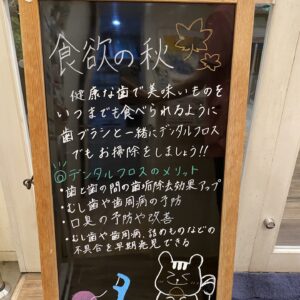 食欲の秋
健康な歯で美味いものを
いつまでも食べられるように
歯ブラシと一緒にデンタルフロス
でもお掃除をしましょう!!
@デンタルフロスのメリット
・歯と歯の間の歯垢除去効果アップ
・むし歯や歯周病の予防
・口臭の予防や改善
・むし歯や歯周病、詰めものなどの
不具合を早期発見できる